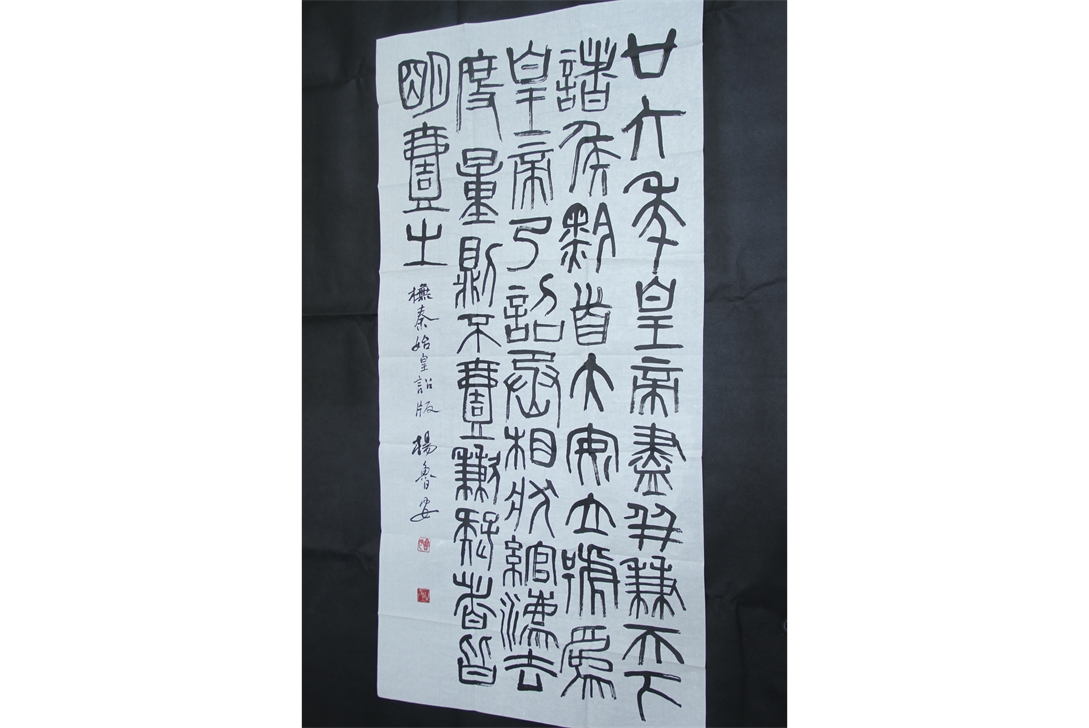 廿六年皇帝盡并兼天下
諸侯黔首大安立號爲
皇帝乃詔丞相狀綰灋
度量則不壹歉疑者皆
明壹之
橅秦始皇詔版 楊魯安